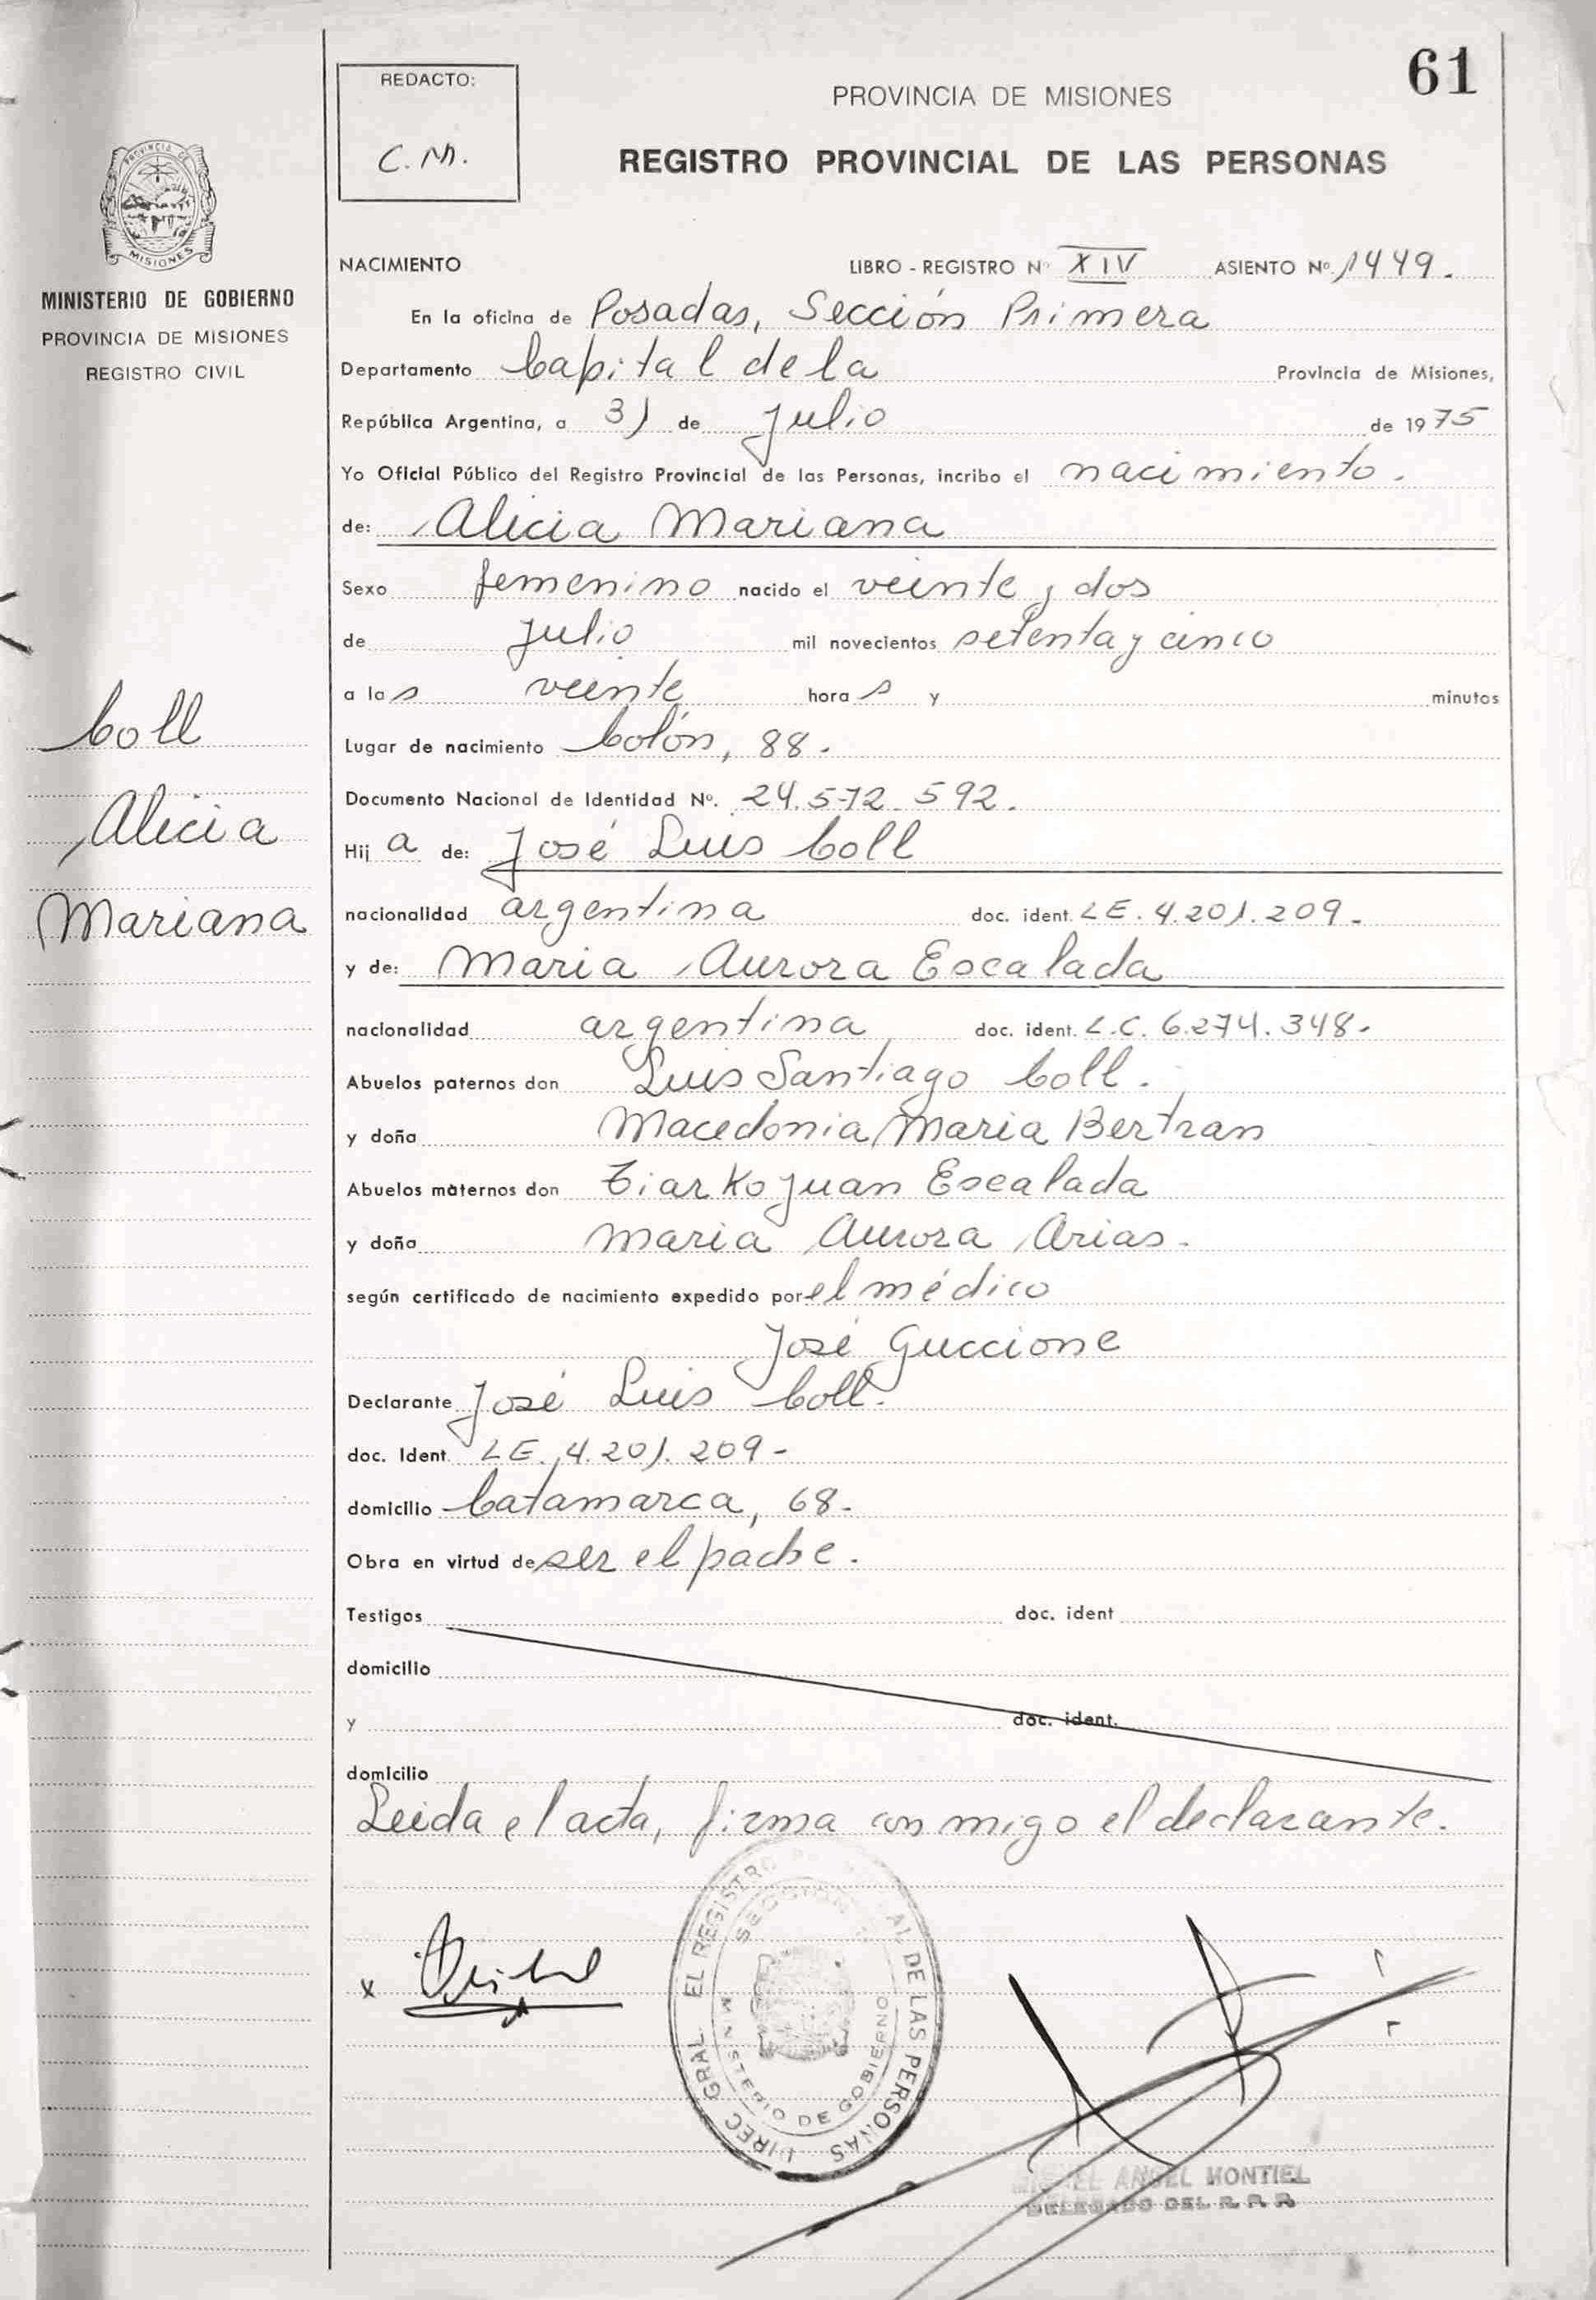 61
REDACTO:
C. M.
PROVINCIA DE MISIONES
REGISTRO PROVINCIAL DE LAS PERSONAS
PROVINCIA DE
MISIONES
MINISTERIO DE GOBIERNO
PROVINCIA DE MISIONES
REGISTRO CIVIL
Coll
Alicia
Mariana
NACIMIENTO LIBRO - REGISTRO Nº XIV ASIENTO Nº 1449.
En la oficina de Posadas, Sección Primera
Departamento Capital de la Provincia de Misiones,
República Argentina, a 31 de Julio de 1975
Yo Oficial Público del Registro Provincial de las Personas, incribo el nacimiento.
de: Alicia Mariana
Sexo femenino nacido el veinte y dos
de Julio mil novecientos setenta y cinco
a las veinte horas y minutos
Lugar de nacimiento Colón, 88.
Documento Nacional de Identidad Nº. 24.572.592.
Hija de: José Luis Coll
nacionalidad argentina doc. ident. L E. 4.201.209-
y de: Maria Aurora Escalada
nacionalidad argentina doc. ident. L.C. 6.274.348.
Abuelos paternos don Luis Santiago Coll.
y doña Macedonia Maria Bertran
Abuelos maternos don Tiarko Juan Escalada
y doña Maria Aurora Arias.
según certificado de nacimiento expedido por el médico
José Guccione
Declarante José Luis Coll.
doc. Ident. L E. 4.201.209-
domicilio Catamarca, 68-
Obra en virtud de ser el padre.
Testigos doc. ident
domicilio
y doc. ident.
domicilio
Leida el acta, firma con migo el declarante.
x
DIREC. GRAL. EL REGISTRO AL DE LAS PERSONAS
SECCION
MINISTERIO DE GOBIERNO
MIGUEL ANGEL MONTIEL
DELEGADO DEL R. P. P.